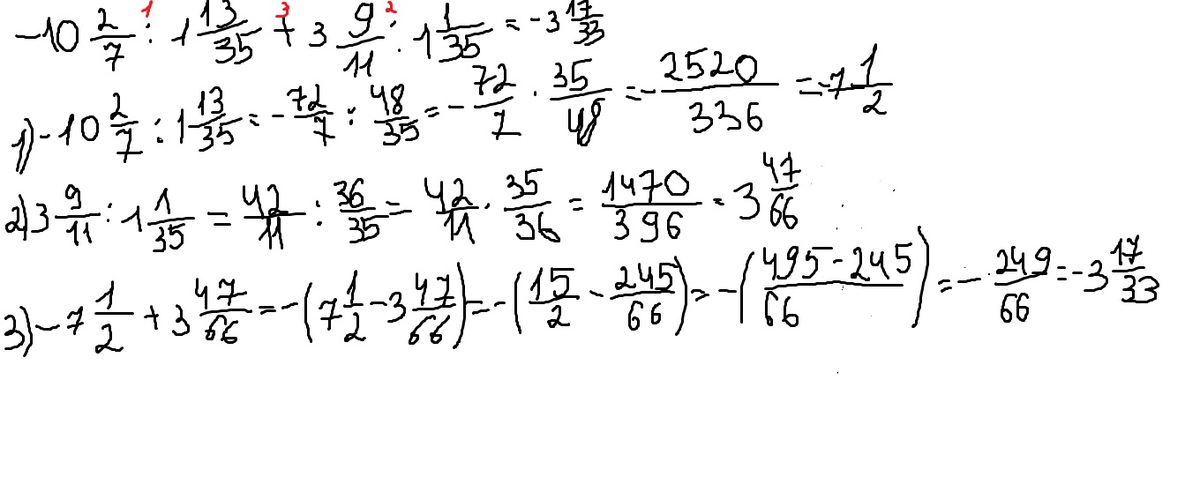 -10 2/7 : 1 13/35 + 3 9/11 : 1 1/35 = -3 17/33
1 3 2
1) -10 2/7 : 1 13/35 = -72/7 : 48/35 = -72/7 · 35/48 = -2520/336 = -7 1/2
2) 3 9/11 : 1 1/35 = 42/11 : 36/35 = 42/11 · 35/36 = 1470/396 = 3 47/66
3) -7 1/2 + 3 47/66 = -(7 1/2 - 3 47/66) = -(15/2 - 245/66) = -(495-245/66) = -249/66 = -3 17/33